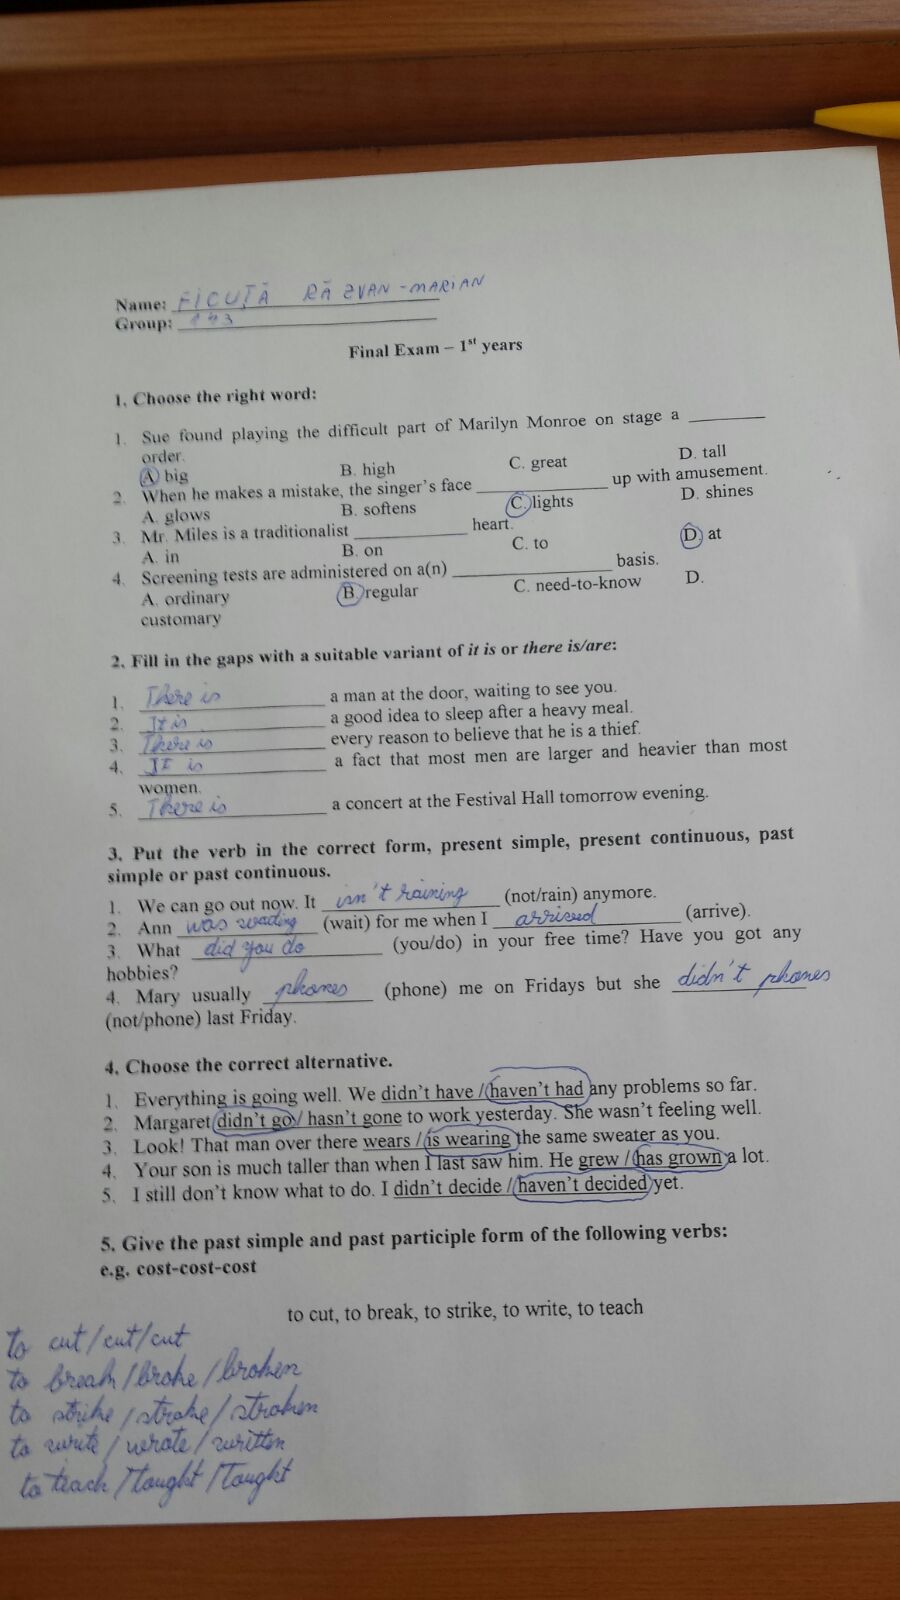 Name: FICUȚĂ RĂZVAN-MARIAN
Group: 143
Final Exam – 1st years
1. Choose the right word:
1. Sue found playing the difficult part of Marilyn Monroe on stage a ________
order.
A. big B. high C. great D. tall
2. When he makes a mistake, the singer's face ____________ up with amusement.
A. glows B. softens C. lights D. shines
3. Mr. Miles is a traditionalist ____________ heart.
A. in B. on C. to D. at
4. Screening tests are administered on a(n) ________________ basis.
A. ordinary B. regular C. need-to-know D.
customary
2. Fill in the gaps with a suitable variant of it is or there is/are:
1. There is a man at the door, waiting to see you.
2. It is a good idea to sleep after a heavy meal.
3. There is every reason to believe that he is a thief.
4. It is a fact that most men are larger and heavier than most
women.
5. There is a concert at the Festival Hall tomorrow evening.
3. Put the verb in the correct form, present simple, present continuous, past
simple or past continuous.
1. We can go out now. It isn't raining (not/rain) anymore.
2. Ann was wading (wait) for me when I arrived (arrive).
3. What did you do (you/do) in your free time? Have you got any
hobbies?
4. Mary usually phones (phone) me on Fridays but she didn't phones
(not/phone) last Friday.
4. Choose the correct alternative.
1. Everything is going well. We didn't have / haven't had any problems so far.
2. Margaret didn't go / hasn't gone to work yesterday. She wasn't feeling well.
3. Look! That man over there wears / is wearing the same sweater as you.
4. Your son is much taller than when I last saw him. He grew / has grown a lot.
5. I still don't know what to do. I didn't decide / haven't decided yet.
5. Give the past simple and past participle form of the following verbs:
e.g. cost-cost-cost
to cut, to break, to strike, to write, to teach
to cut/cut/cut
to break/broke/broken
to strike/stroke/stroken
to write/wrote/written
to teach/tought/tought